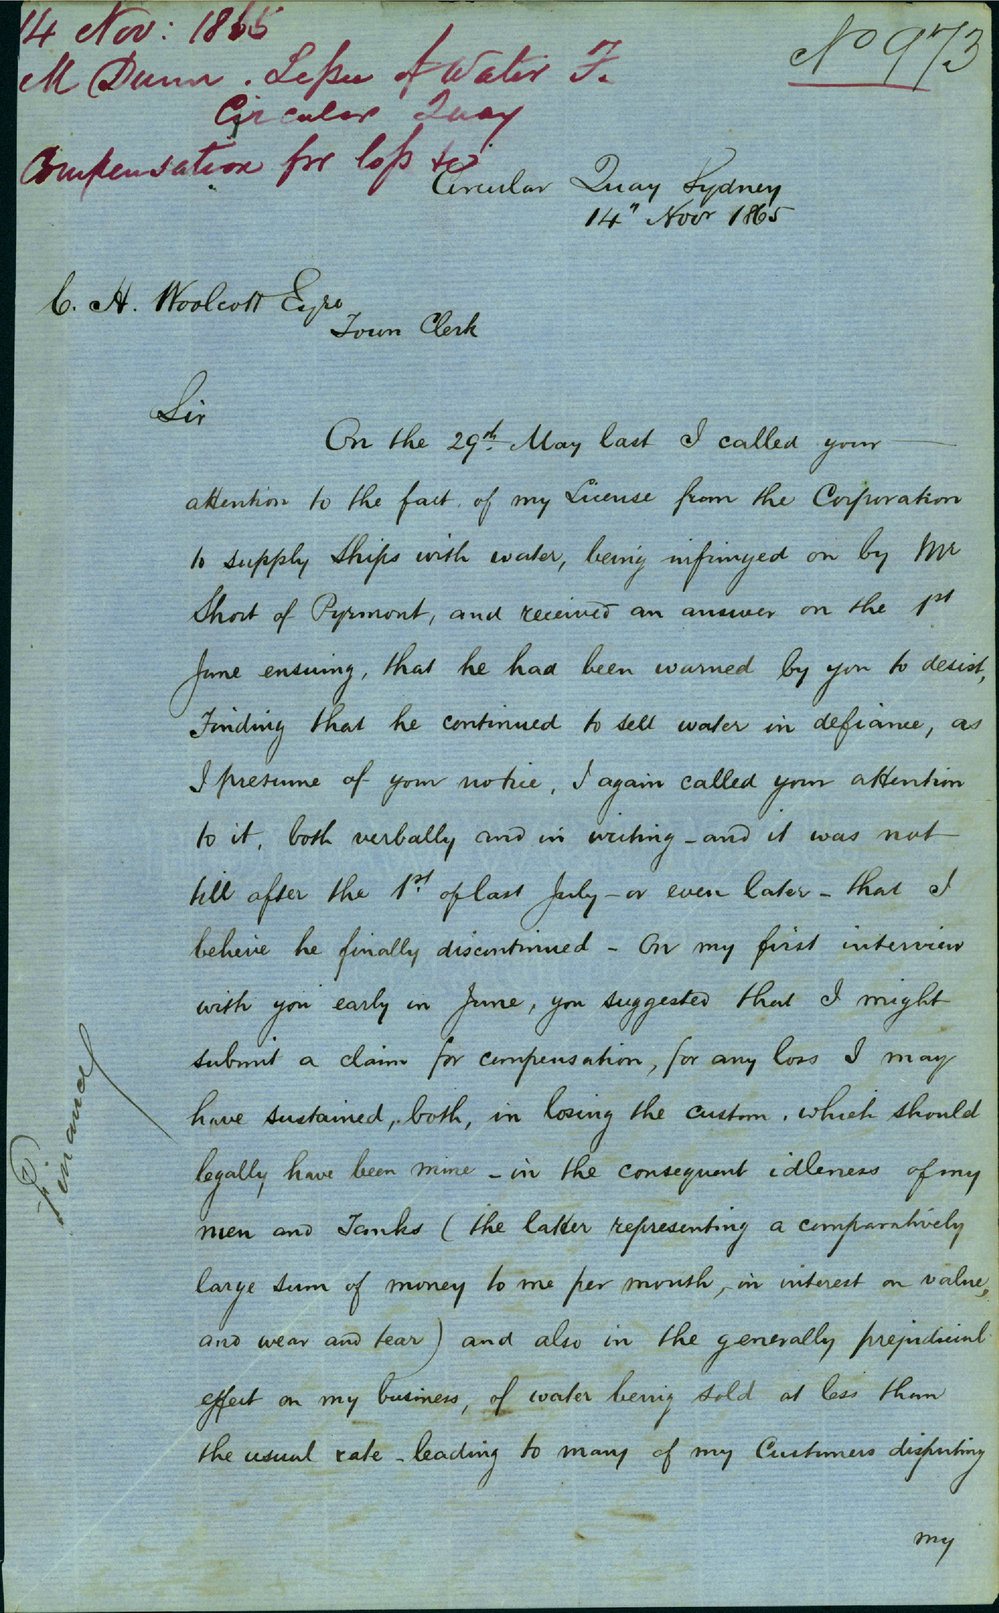 14 Nov: 1865
No 973
M Dunn. Lessee of Water F.
Circular Quay
Compensation for loss &c
Circular Quay Sydney
14" Novr 1865
C. H. Woolcott Esqre
Town Clerk
Sir
On the 29th May last I called your
attention to the fact of my License from the Corporation
to supply Ships with water, being infringed on by Mr
Short of Pyrmont, and received an answer on the 1st
June ensuing, that he had been warned by you to desist,
Finding that he continued to sell water in defiance, as
I presume of your notice, I again called your attention
to it, both verbally and in writing - and it was not
till after the 1st of last July - or even later - that I
believe he finally discontinued - On my first interview
with you early in June, you suggested that I might
submit a claim for compensation, for any loss I may
have sustained, both, in losing the custom, which should
legally have been mine - in the consequent idleness of my
men and Tanks (the latter representing a comparatively
large sum of money to me per month, in interest on value,
and wear and tear) and also in the generally prejudicial
effect on my business, of water being sold at less than
the usual rate - leading to many of my Customers disputing
my
Finance